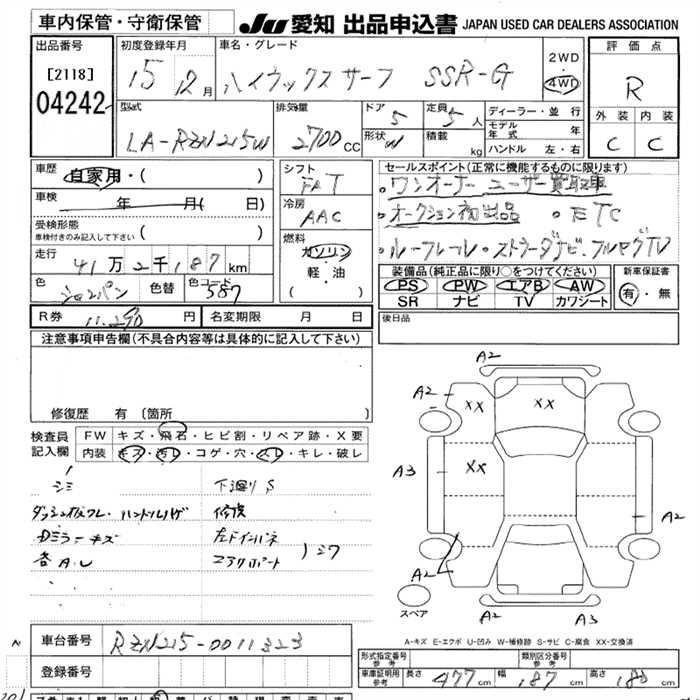 車内保管・守衛保管
JU 愛知 出品申込書 JAPAN USED CAR DEALERS ASSOCIATION
出品番号
[2118]
04242
初度登録年月
15 12月
車名・グレード
ハイラックスサーフ SSR-G
2WD
4WD
評価点
R
外装 内装
C C
型式
LA-RZN215W
排気量
2700 CC
ドア 5
形状 W
定員 5人
積載 kg
ディーラー・並行
モデル年式 年
ハンドル 左・右
車歴
自家用・( )
車検
年 月( 日)
受検形態
車検付きのみ記入して下さい ( )
走行
41万2千187km
色
シャンパン
色替
色コード
587
シフト
FAT
冷房
AAC
燃料
ガソリン
軽・油
( )
セールスポイント(正常に機能するものに限ります)
・ワンオーナー ユーザー買取車
・オークション初出品 ・ETC
・ルーフレール・ストラーダナビ・フルセグTV
装備品(純正品に限り○をつけてください)
PS PW エアB AW
SR ナビ TV カワシート
新車保証書
有・無
R券 11,290 円
名変期限 月 日
後日品
注意事項申告欄(不具合内容等は具体的に記入して下さい)
修復歴 有 (箇所 )
検査員記入欄
FW キズ・飛石・ヒビ割・リペア跡・X要
内装 キズ・汚レ・コゲ・穴・スレ・キレ・破レ
シミ
ハンドルハゲ
Dミラーキズ
各A.U
下廻りS
修復
左ドインパネ
コアサポート
A2
A2
XX
XX
A2
A3
XX
A2
A2
A2
A3
スペア
A-キズ E-エクボ U-凹み W-補修跡 S-サビ C-腐食 XX-交換済
車台番号 RZN215-0011323
登録番号
形式指定番号 参考
類別区分番号 参考
車庫証明用 参考
長さ 477cm 幅 187cm 高さ 180cm